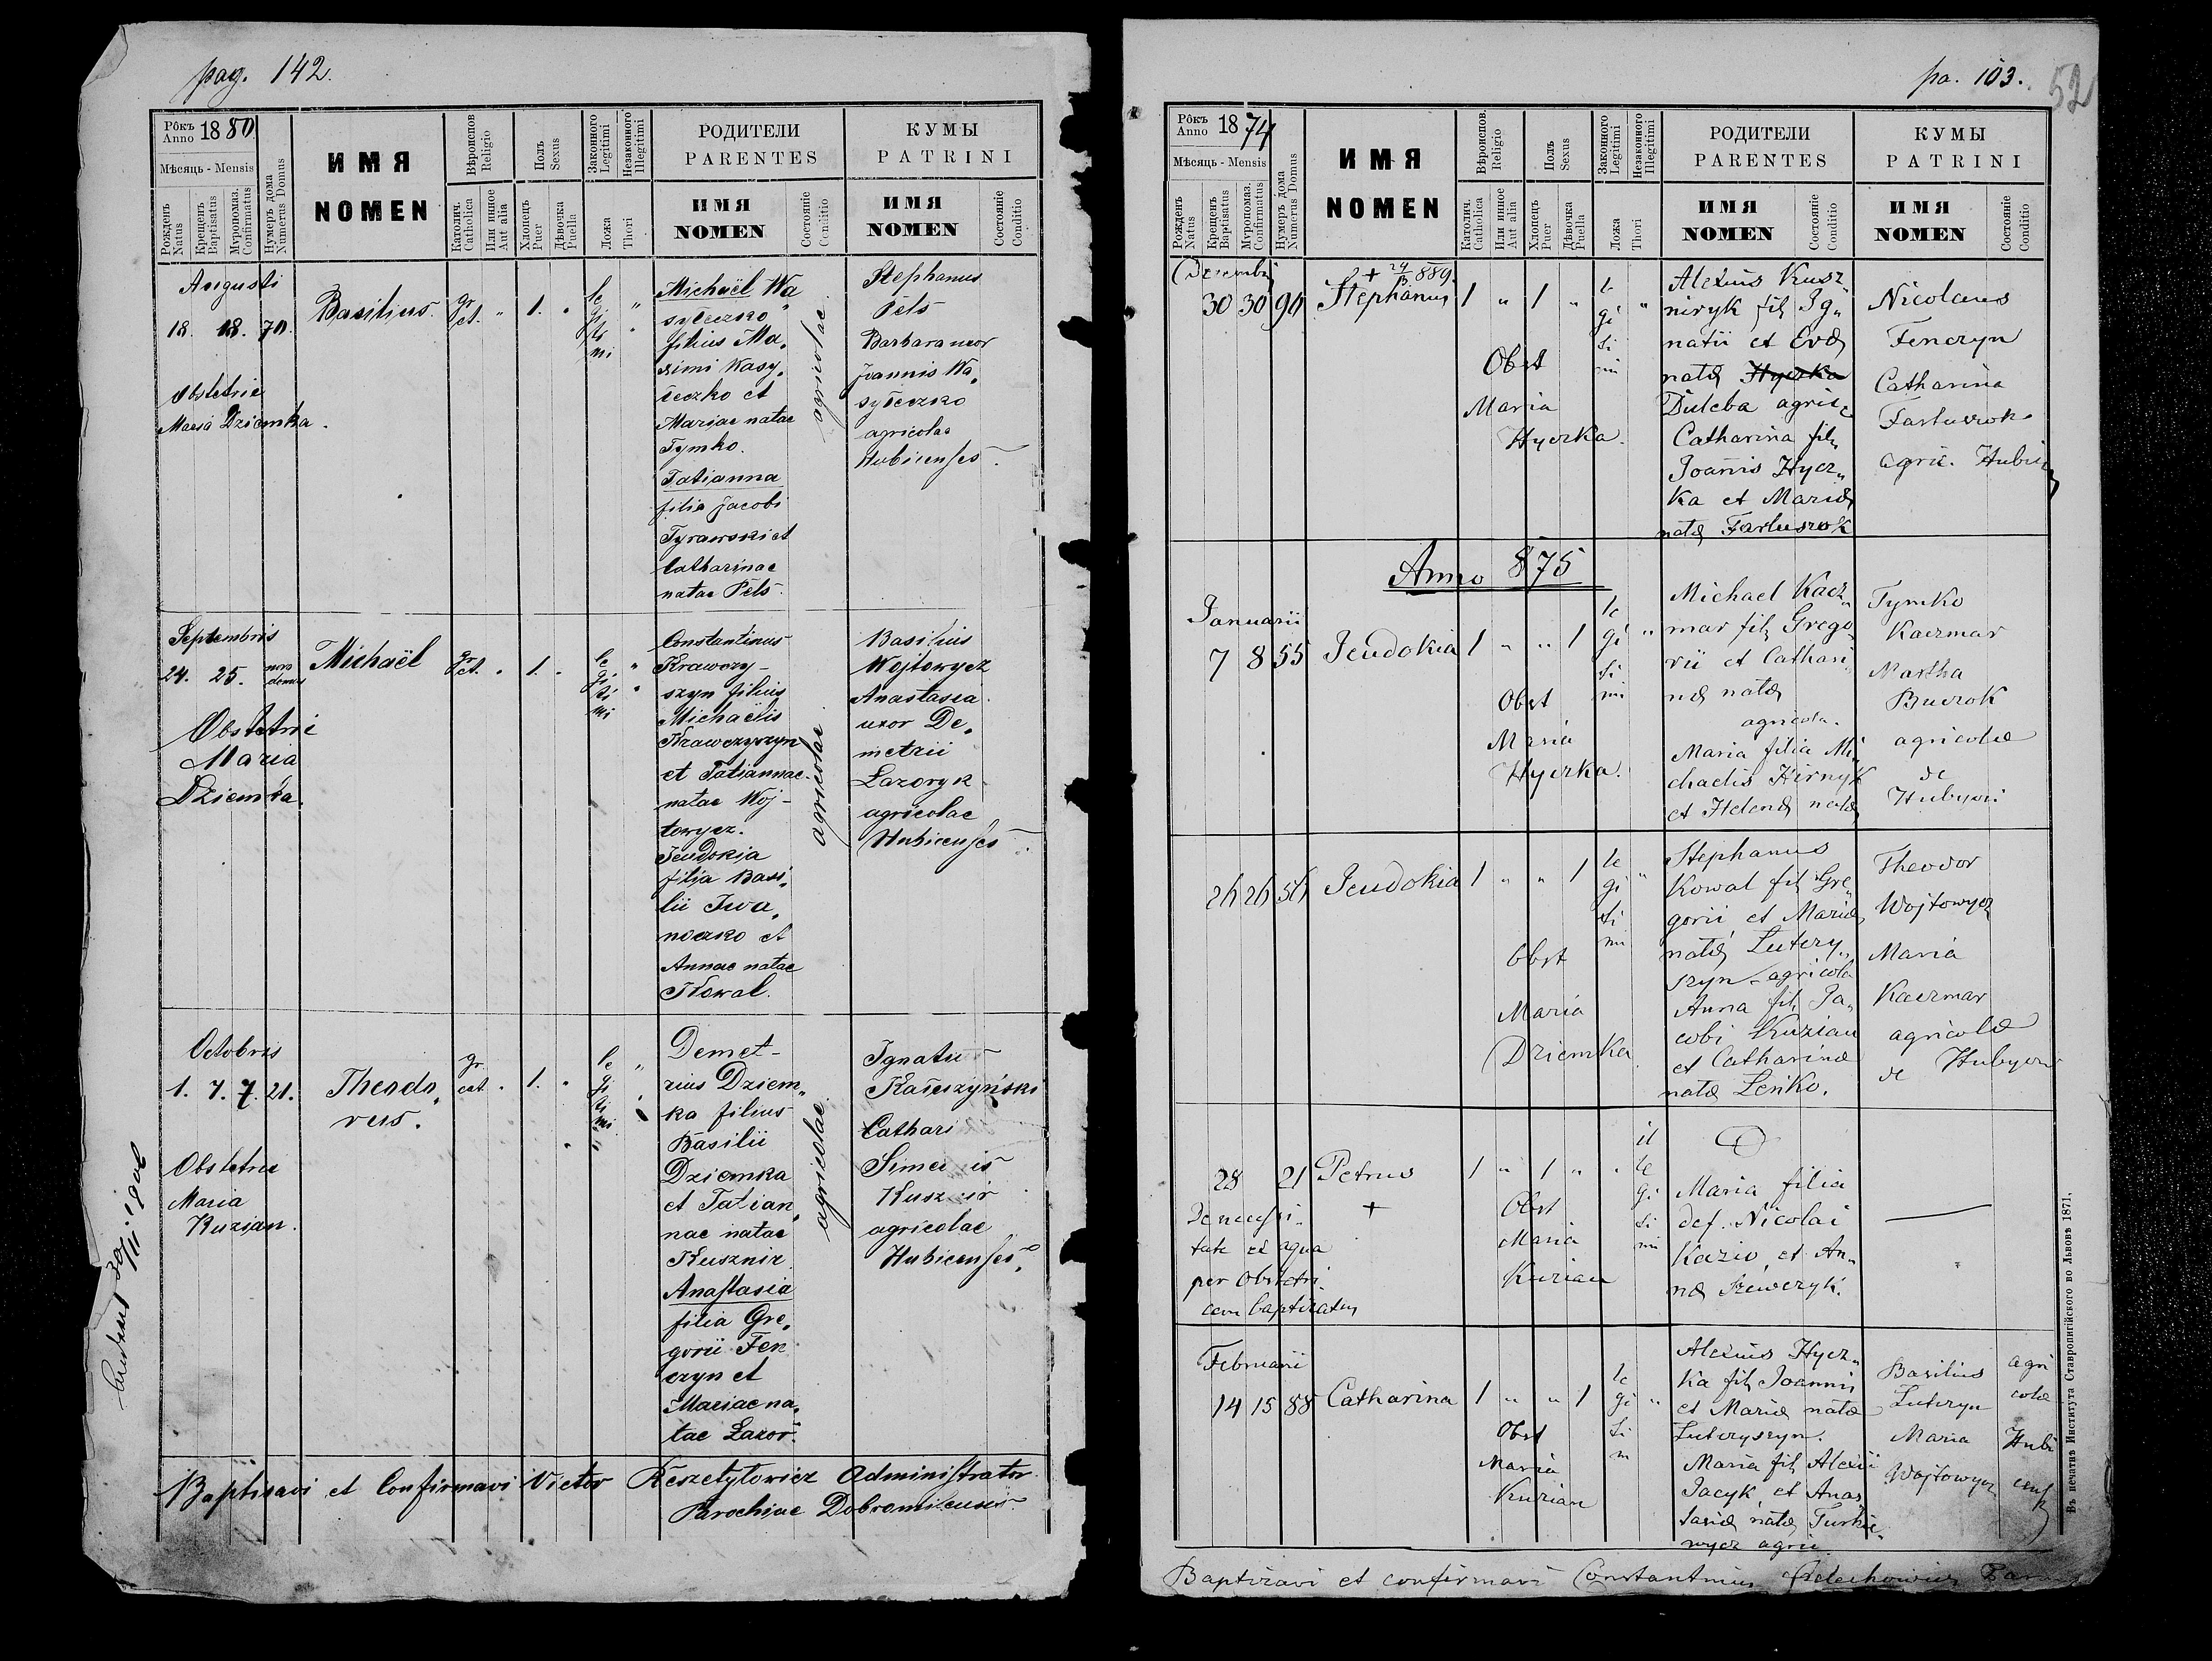 pag. 142.
Рôкъ Anno 1880
Мѣсяць - Mensis
Рожденъ Natus
Крещенъ Baptisatus
Мѵропомаз. Confirmatus
Нумеръ дома Numerus Domus
ИМЯ NOMEN
Вѣроиспов Religio
Католич. Catholica
Или инное Aut alia
Полъ Sexus
Хлопецъ Puer
Дѣвочка Puella
Законного Legitimi
Незаконного Illegitimi
Ложа Thori
РОДИТЕЛИ PARENTES
ИМЯ NOMEN
Состоянiе Conditio
КУМЫ PATRINI
ИМЯ NOMEN
Состоянiе Conditio
Augusti
18. 18. 70.
Obstetrix
Maria Dziemka.
Basilius.
gr ct. " 1. "
le gi ti mi "
Michaël Wa
syleczko
filius Ma„
ximi Wasy„
leczko et
Mariae natae
Tymko.
Tatianna
filia Jacobi
Tyrawski et
Catharinae
natae Pels.
agricolae
Stephanus
Pels
Barbara uxor
Joannis Wa„
syleczko
agricolae
Hubicenses.
Septembris
24. 25.
Obstetrix
Maria
Dziemka.
Michaël
gr ct. " 1. "
le gi ti mi "
Constantinus
Krawczy-
szyn filius
Michaëlis
Krawczyszyn
et Tatiannae
natae Woj-
towycz.
Jeudokia
filia Basi„
lii Iwa„
noczko et
Annae natae
Kowal.
agricolae
Basilius
Wojtowycz
Anastasia
uxor De„
metrii
Lazoryk
agricolae
Hubicenses.
Octobris
1. 7. 7. 21.
Obstetrix
Maria
Kuzian.
Theodo„
rus.
gr cat " 1. "
le gi ti mi "
Demet-
rius Dziem„
ka filius
Basilii
Dziemka
et Tatian„
nae natae
Kusznir
Anastasia
filia Gre„
gorii Fen
czyn et
Mariae na„
tae Lazor.
agricolae
Ignatius
Kaleszyński
Cathari
Simeonis
Kusznir
agricolae
Hubicenses.
Baptisavi et Confirmavi Victor Reszetylowicz Administrator
Parochiae Dobromilensis.
pa. 103.
52
Рôкъ Anno 1874
Мѣсяць - Mensis
Рожденъ Natus
Крещенъ Baptisatus
Мѵропомаз. Confirmatus
Нумеръ дома Numerus Domus
ИМЯ NOMEN
Вѣроиспов. Religio
Католич. Catholica
Или инное Aut alia
Полъ Sexus
Хлопецъ Puer
Дѣвочка Puella
Законного Legitimi
Незаконного Illegitimi
Ложа Thori
РОДИТЕЛИ PARENTES
ИМЯ NOMEN
Состоянiе Conditio
КУМЫ PATRINI
ИМЯ NOMEN
Состоянiе Conditio
Dziembr
30 30 90
Stephanus
1 " 1 "
le gi ti mi "
Obst
Maria
Hyczka.
Alexius Kusz„
niryk fil Ig„
natii et Evae
natae Hyczka
Duleba agric
Catharina fil
Joannis Hycz„
ka et Mariae
natae Fartuszok
Nicolaus
Fenczyn
Catharina
Fartuszok
agric. Hubic
Anno 875
Januarii
7 8 55
Jeudokia
1 " " 1
le gi ti mi "
Obst
Maria
Hyczka.
Michael Kacz„
mar fil Grego„
rii et Cathari„
nae natae
agricola.
Maria filia Mi„
chaelis Hirnyk
et Helenae natae
Tymko
Kaczmar
Martha
Buczok
agricolae
de
Hubycei
26 26 56
Jeudokia
1 " " 1
le gi ti mi "
Obst
Maria
Dziemka
Stephanus
Kowal fil Gre„
gorii et Mariae
natae Lutczy„
szyn agricola
Anna fil Ja„
cobi Kuzian
et Catharinae
natae Leńko.
Theodor
Wojtowycz
Maria
Kaczmar
agricolae
de Hubycei
28 21
Petrus
+
1 " 1 "
il le gi ti mi
De necessi„
tate ex aqua
per Obstetri„
cem baptizatus
Obst
Maria
Kuzian
Maria filia
def. Nicolai
Kazio et An„
nae Szewczyk.
Februarii
14 15 88
Catharina
1 " " 1
le gi ti m "
Obst
Maria
Kuzian
Alexius Hycz„
ka fil Joannis
et Mariae natae
Lutczyszyn.
Maria fil Alexii
Jacyk et Anas
tasiae natae Turkie„
wycz agric.
Basilius agri
Lutczyn colae
Maria Hubi
Wojtowycz cens
Baptizavi et confirmavi Constantinus
Въ печатнѣ Института Ставропигiйского во Львовѣ 1871.